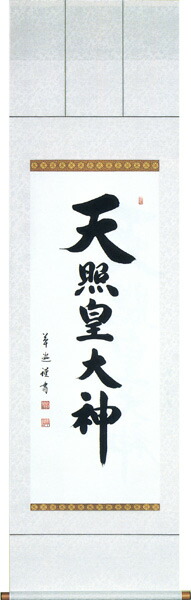 天照皇大神
謹書